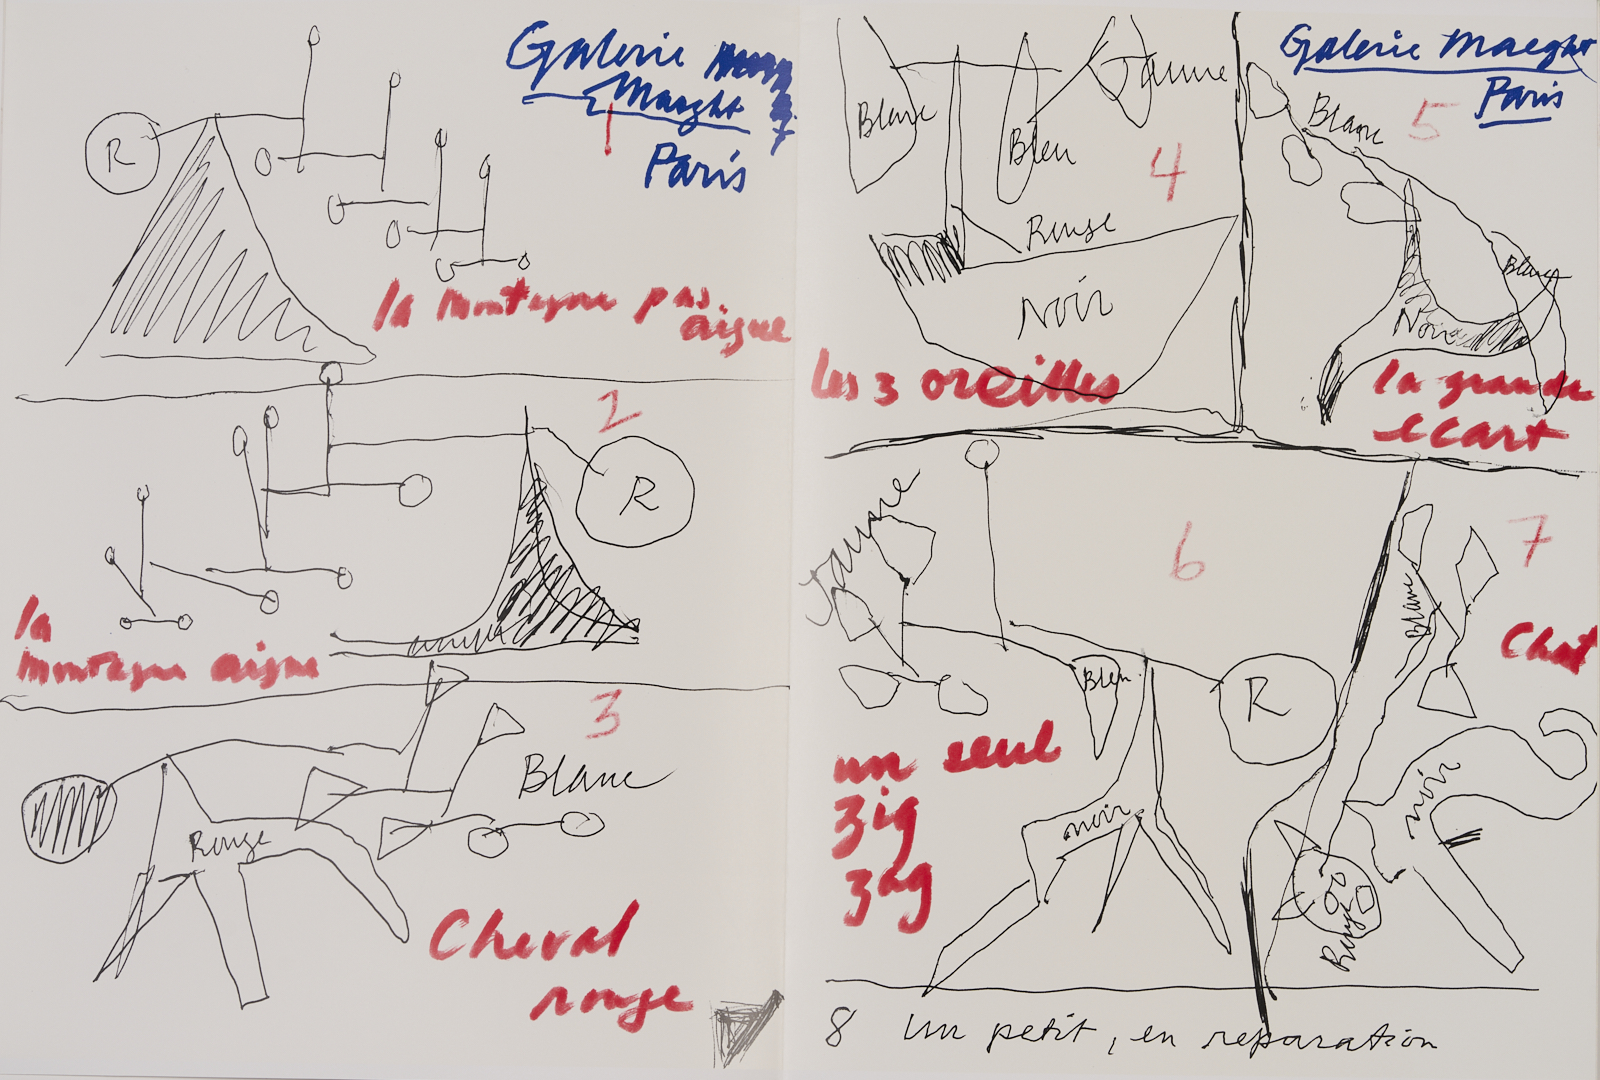 Galerie
Maeght
Paris
1
R
la montagne pas
aigue
2
R
la
montagne aigue
3
Blanc
Rouge
Cheval
rouge
Galerie Maeght
Paris
Blanc
Bleu
Jaune
4
Rouge
Noir
les 3 oreilles
5
Blanc
Blanc
Noir
la grande
ecart
6
Jaune
Bleu
R
noir
un seul
zig
zag
7
Blanc
Chat
noir
Rouge
8 un petit, en reparation